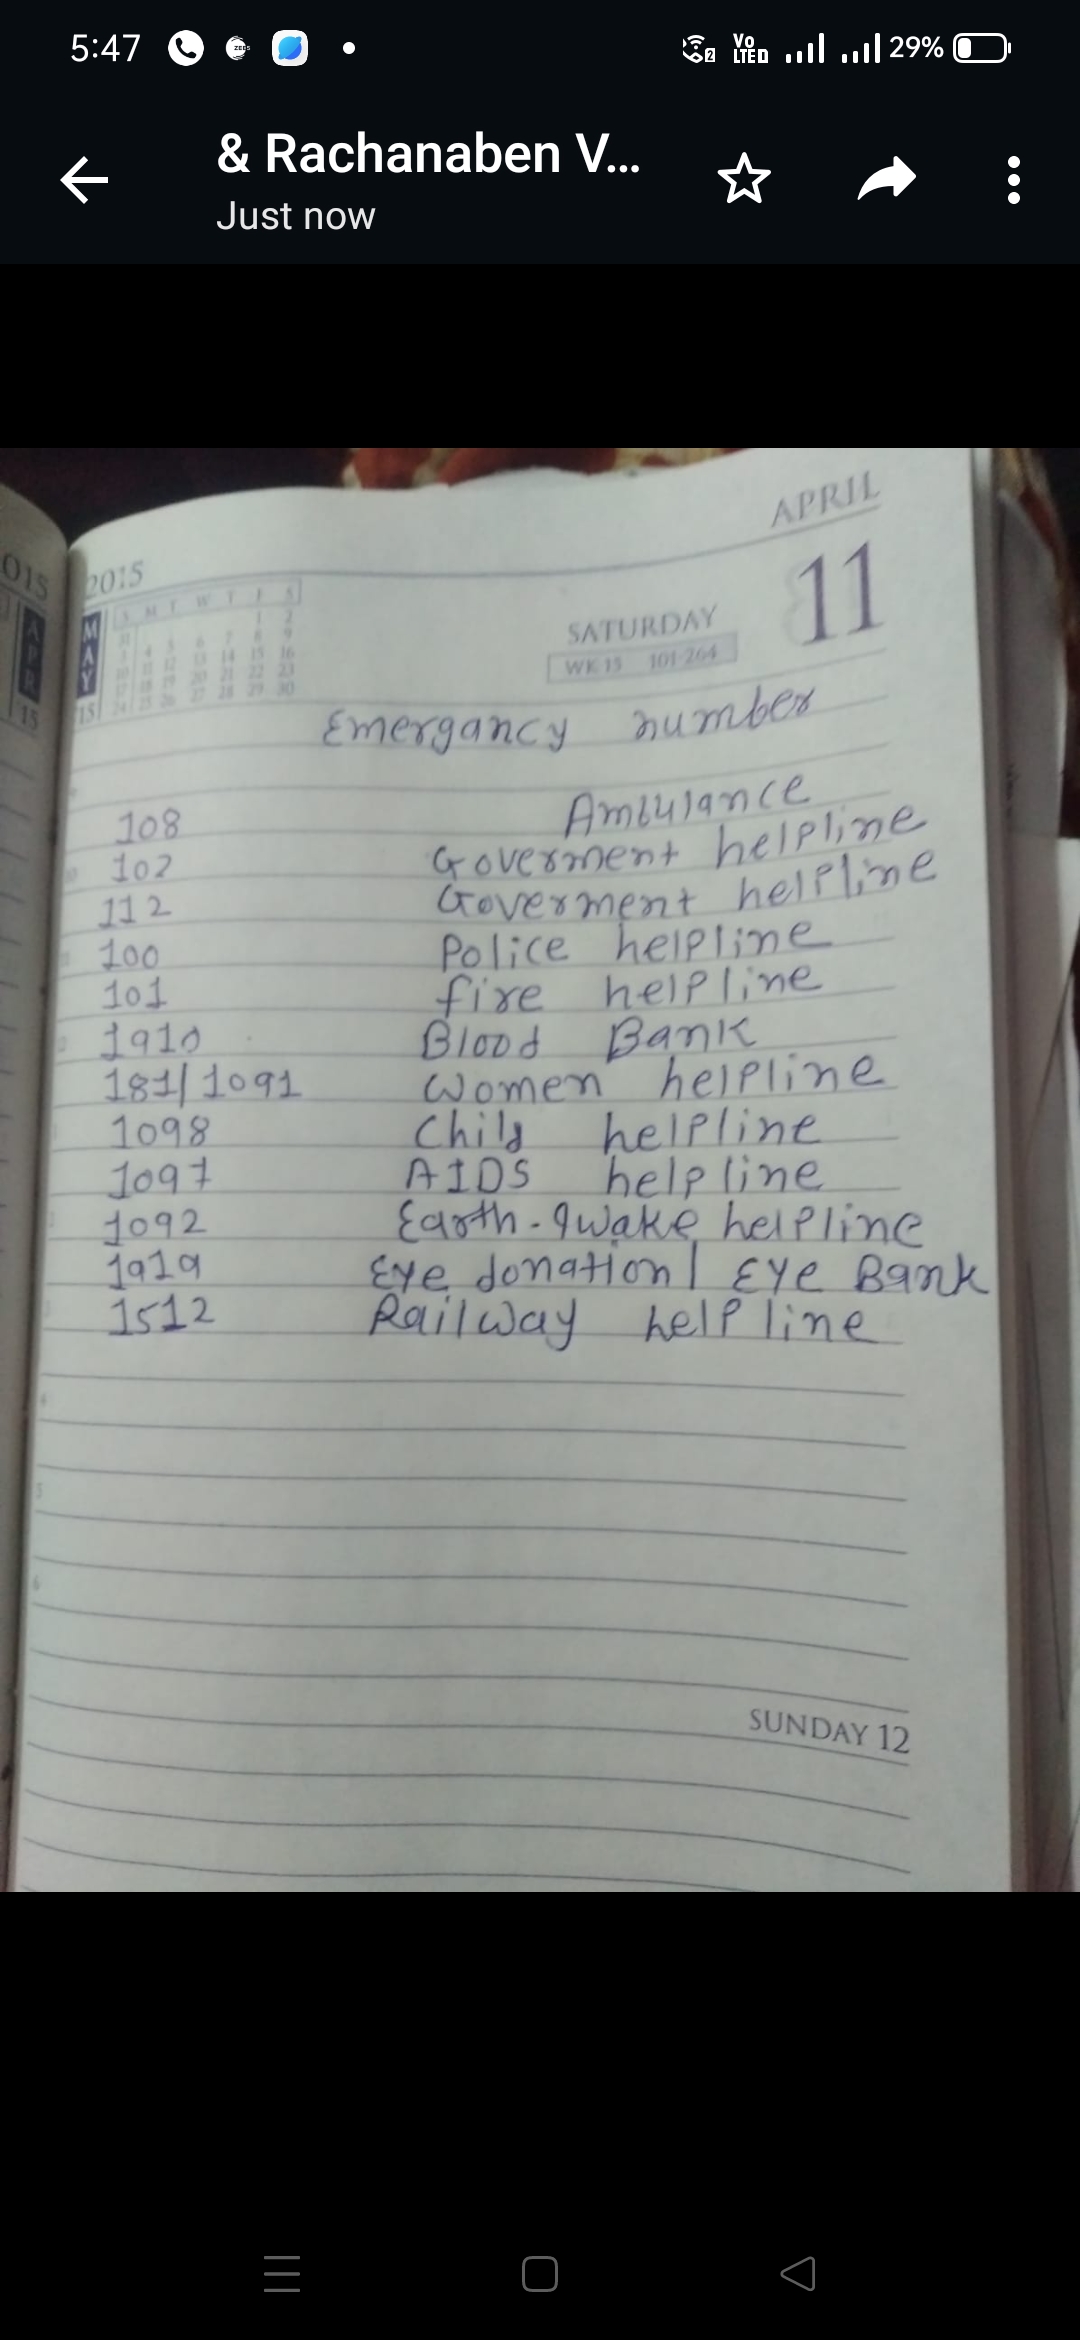 5:47 29%
& Rachanaben V...
Just now
APRIL
2015
11
SATURDAY
WK 15 101-264
MAY
'15
Emergancy number
108 Ambulance
102 Goverment helpline
112 Goverment helpline
100 Police helpline
101 fire helpline
1910 Blood Bank
181/1091 Women helpline
1098 Child helpline
1097 AIDS helpline
1092 Earth-qwake helpline
1919 Eye donation/ Eye Bank
1512 Railway helpline
SUNDAY 12